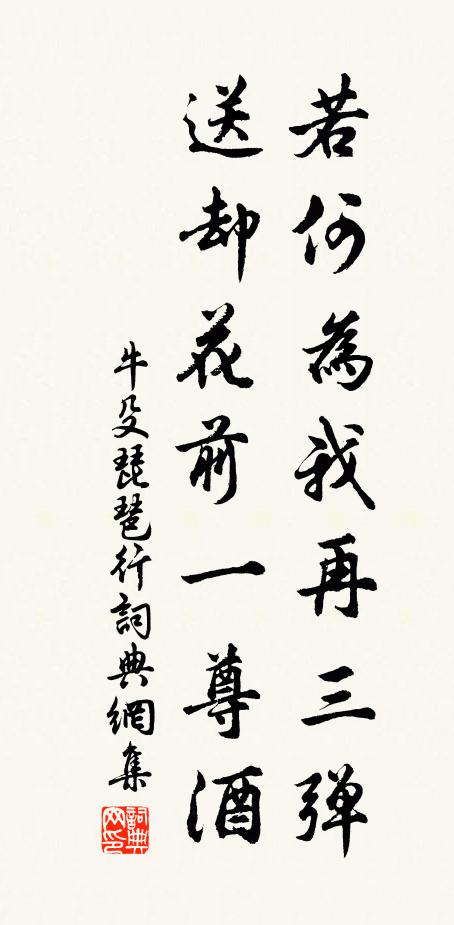 若何為我再三弹
送却花前一尊酒
牛殳琵琶行詞典網集
詞典网印